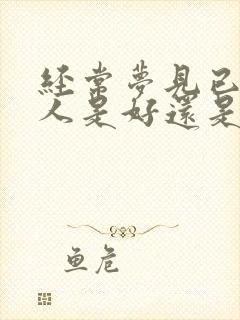 經常夢見已
人是好還是
鱼危